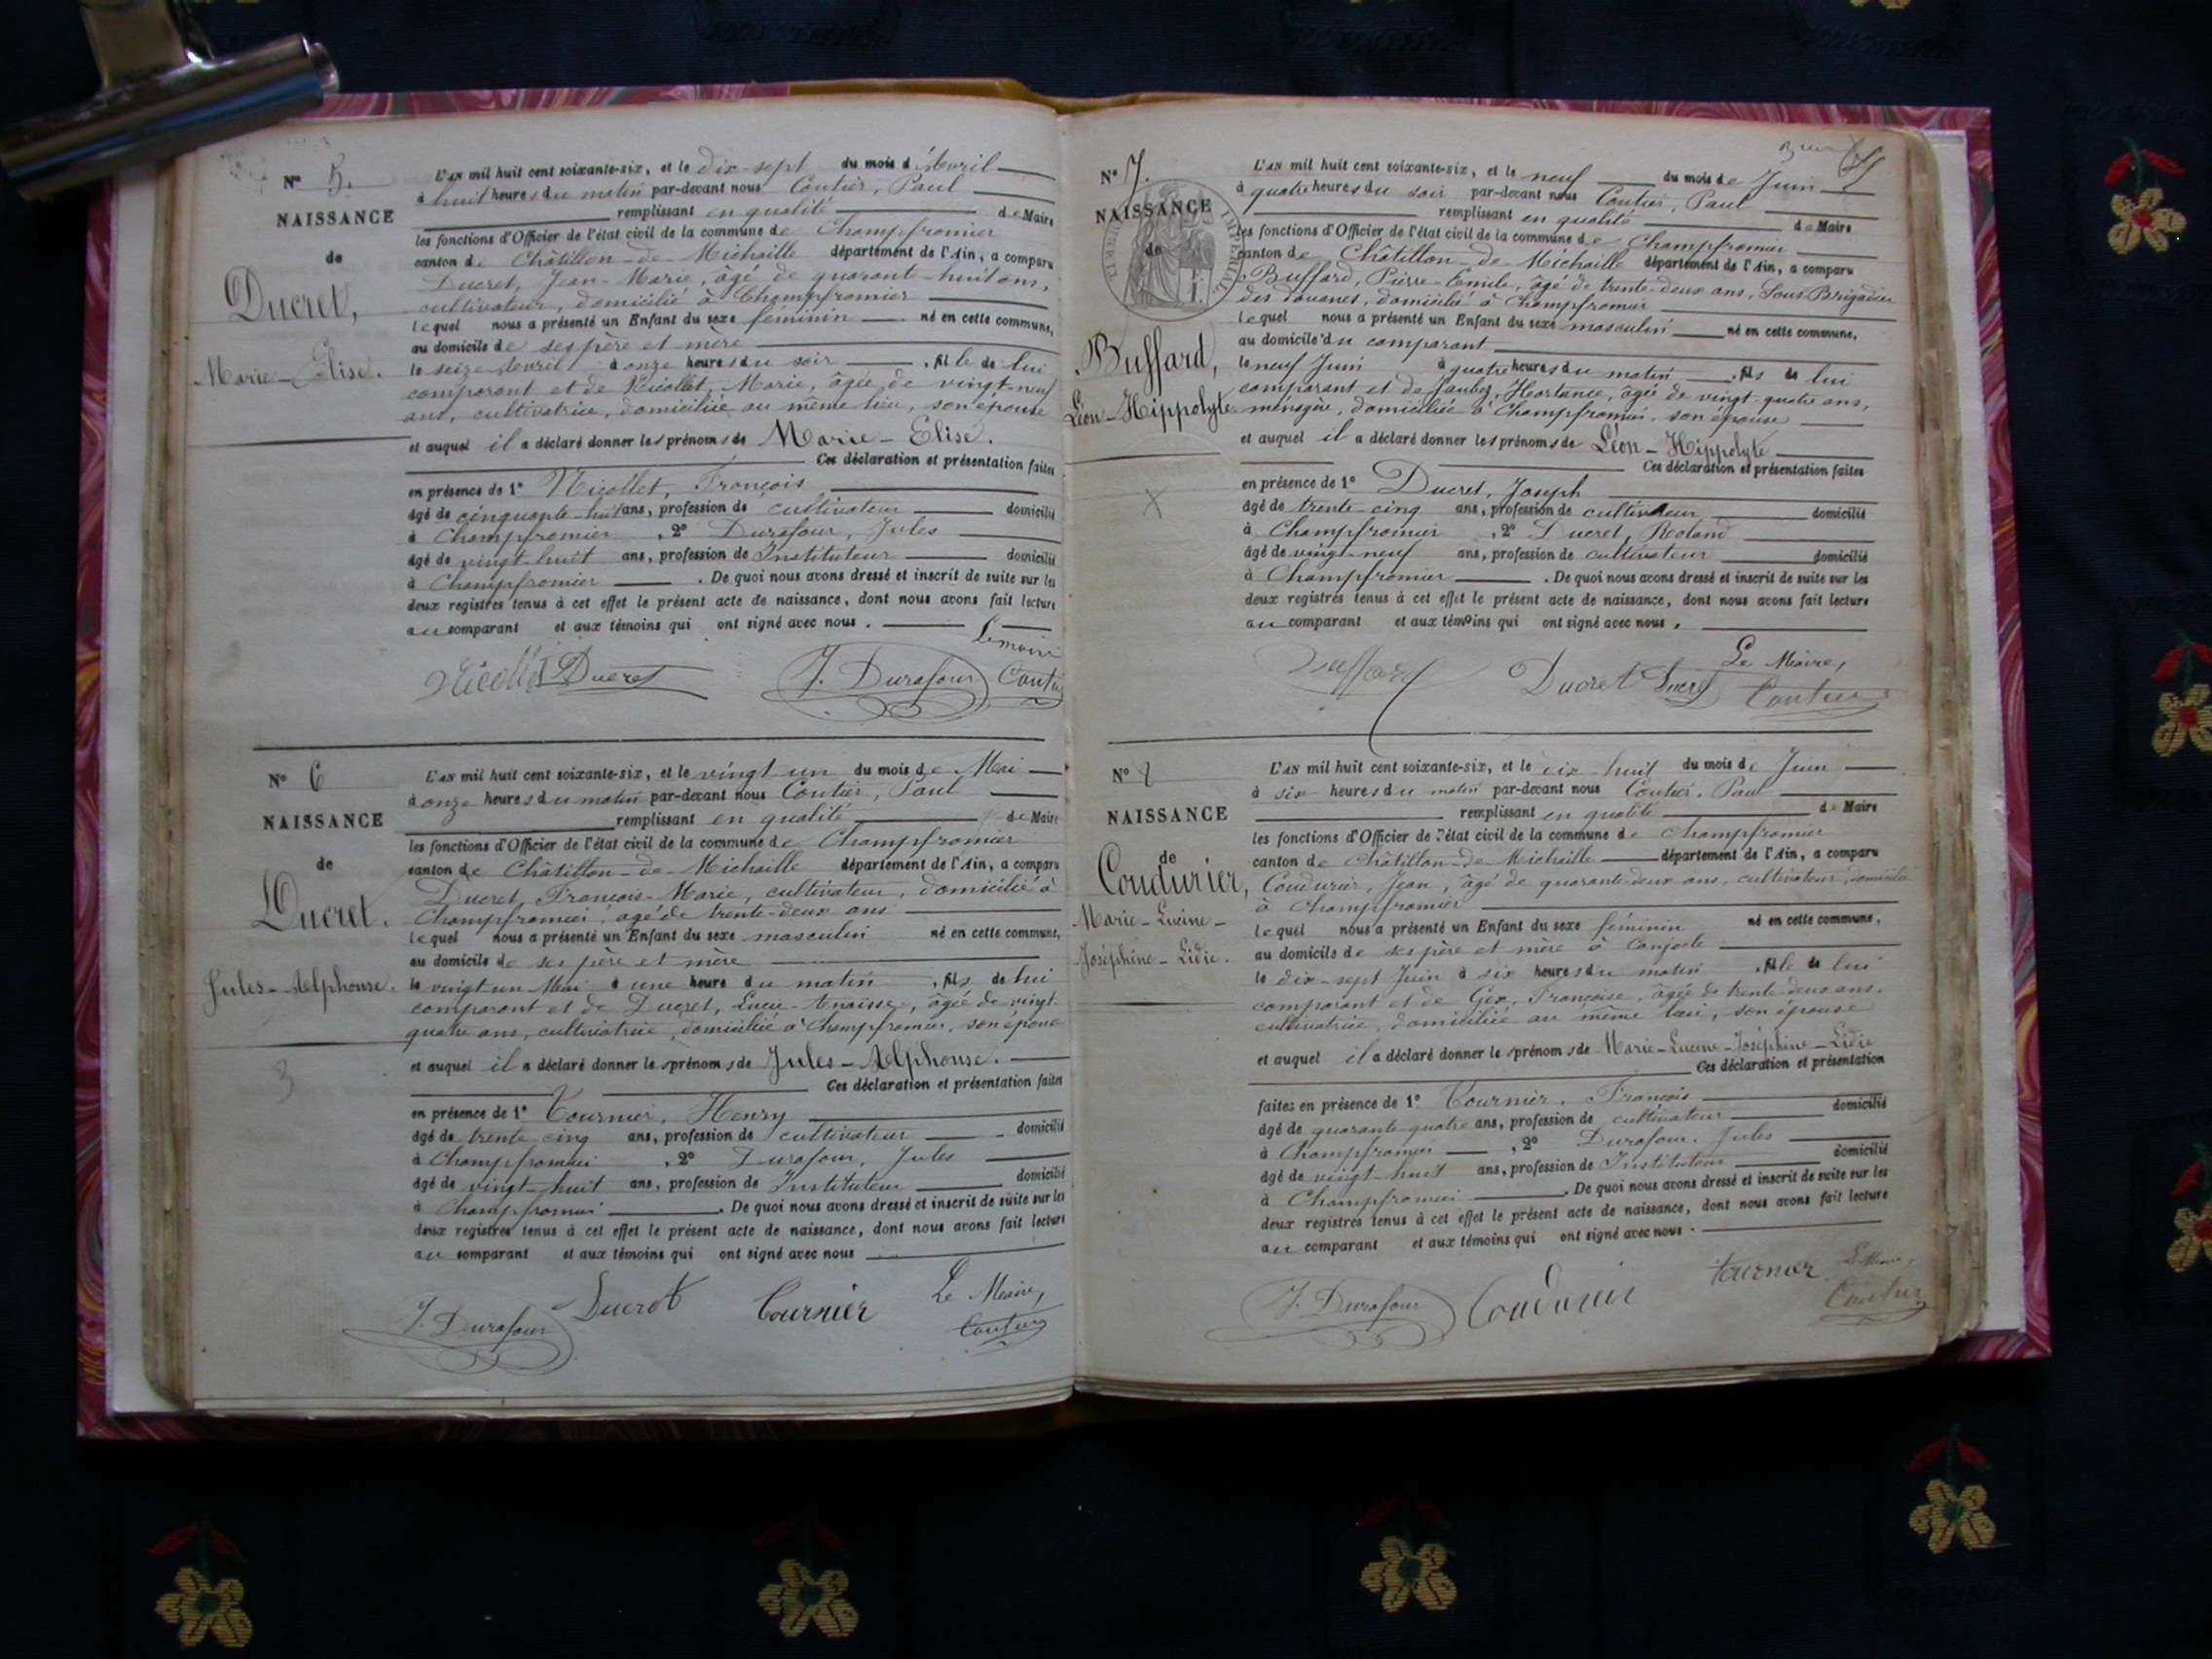 N° 5.
NAISSANCE
de
Ducret,
Marie-Elise.
L'AN mil huit cent soixante-six, et le dix-sept du mois d'Avril
à huit heures du matin par-devant nous Coutier, Paul
remplissant en qualité de Maire
les fonctions d'Officier de l'état civil de la commune de Champfromier
canton de Châtillon-de-Michaille département de l'Ain, a comparu
Ducret, Jean-Marie, âgé de quarante-huit ans,
cultivateur, domicilié à Champfromier
lequel nous a présenté un Enfant du sexe féminin né en cette commune,
au domicile de ses père et mère
le seize Avril à onze heures du soir, fille de lui
comparant et de Nicollet, Marie, âgée de vingt-neuf
ans, cultivatrice, domiciliée au même lieu, son épouse
et auquel il a déclaré donner les prénoms de Marie-Elise.
Ces déclaration et présentation faites
en présence de 1° Nicollet, François
âgé de cinquante-huit ans, profession de cultivateur domicilié
à Champfromier, 2° Durafour, Jules
âgé de vingt-huit ans, profession de Instituteur domicilié
à Champfromier. De quoi nous avons dressé et inscrit de suite sur les
deux registres tenus à cet effet le présent acte de naissance, dont nous avons fait lecture
au comparant et aux témoins qui ont signé avec nous.
Le maire
Nicollet Ducret J. Durafour Coutier
N° 6
NAISSANCE
de
Ducret.
Jules-Alphonse.
L'AN mil huit cent soixante-six, et le vingt un du mois de Mai
à onze heures du matin par-devant nous Coutier, Paul
remplissant en qualité de Maire
les fonctions d'Officier de l'état civil de la commune de Champfromier
canton de Châtillon-de-Michaille département de l'Ain, a comparu
Ducret, François-Marie, cultivateur, domicilié à
Champfromier, âgé de trente-deux ans
lequel nous a présenté un Enfant du sexe masculin né en cette commune,
au domicile de ses père et mère
le vingt un Mai à une heure du matin, fils de lui
comparant et de Ducret, âgée de vingt-
quatre ans, cultivatrice, domiciliée à Champfromier, son épouse
et auquel il a déclaré donner les prénoms de Jules-Alphonse.
Ces déclaration et présentation faites
en présence de 1° Tournier, Henry
âgé de trente cinq ans, profession de cultivateur domicilié
à Champfromier, 2° Durafour, Jules
âgé de vingt-huit ans, profession de Instituteur domicilié
à Champfromier. De quoi nous avons dressé et inscrit de suite sur les
deux registres tenus à cet effet le présent acte de naissance, dont nous avons fait lecture
au comparant et aux témoins qui ont signé avec nous
J. Durafour Ducret Tournier Le Maire,
Coutier
N° 7.
NAISSANCE
de
TIMBRE IMPERIAL
Buffard,
Léon-Hippolyte
L'AN mil huit cent soixante-six, et le neuf du mois de Juin
à quatre heures du soir par-devant nous Coutier, Paul
remplissant en qualité de Maire
les fonctions d'Officier de l'état civil de la commune de Champfromier
canton de Châtillon-de-Michaille département de l'Ain, a comparu
Buffard, Pierre-Emile, âgé de trente-deux ans, Sous-Brigadier
des douanes, domicilié à Champfromier
lequel nous a présenté un Enfant du sexe masculin né en cette commune,
au domicile du comparant
le neuf Juin à quatre heures du matin, fils de lui
comparant et de Hortance, âgée de vingt-quatre ans,
ménagère, domiciliée à Champfromier, son épouse
et auquel il a déclaré donner les prénoms de Léon-Hippolyte
Ces déclaration et présentation faites
en présence de 1° Ducret, Joseph
âgé de trente-cinq ans, profession de cultivateur domicilié
à Champfromier, 2° Ducret, Roland
âgé de vingt-neuf ans, profession de cultivateur domicilié
à Champfromier. De quoi nous avons dressé et inscrit de suite sur les
deux registres tenus à cet effet le présent acte de naissance, dont nous avons fait lecture
au comparant et aux témoins qui ont signé avec nous.
Le Maire,
Buffard Ducret Ducret Coutier
N° 8
NAISSANCE
de
Coudurier,
Marie-Lucine-
Joséphine-Lidie.
L'AN mil huit cent soixante-six, et le dix-huit du mois de Juin
à six heures du matin par-devant nous Coutier, Paul
remplissant en qualité de Maire
les fonctions d'Officier de l'état civil de la commune de Champfromier
canton de Châtillon-de-Michaille département de l'Ain, a comparu
Coudurier, Jean, âgé de quarante-deux ans, cultivateur, domicilié
à Champfromier
lequel nous a présenté un Enfant du sexe féminin né en cette commune,
au domicile de ses père et mère à
le dix-sept Juin à six heures du matin, fille de lui
comparant et de Gex, Françoise, âgée de trente-deux ans,
cultivatrice, domiciliée au même lieu, son épouse
et auquel il a déclaré donner les prénoms de Marie-Lucine-Joséphine-Lidie
Ces déclaration et présentation
faites en présence de 1° Tournier, François
âgé de quarante-quatre ans, profession de cultivateur domicilié
à Champfromier, 2° Durafour, Jules
âgé de vingt-huit ans, profession de Instituteur domicilié
à Champfromier. De quoi nous avons dressé et inscrit de suite sur les
deux registres tenus à cet effet le présent acte de naissance, dont nous avons fait lecture
au comparant et aux témoins qui ont signé avec nous.
J. Durafour Coudurier tournier Le Maire,
Coutier